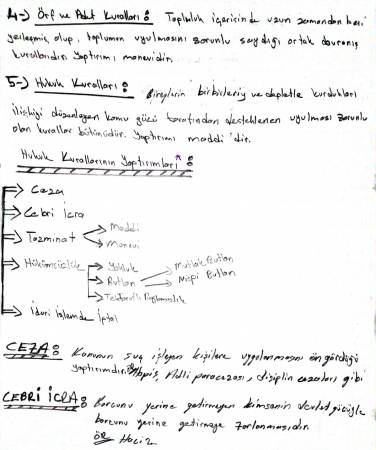 4-) Örf ve Adet Kuralları: Topluluk içerisinde uzun zamandan beri
yerleşmiş olup, toplumun uyulmasını zorunlu saydığı ortak davranış
kurallarıdır. Yaptırımı manevidir.
5-) Hukuk Kuralları: Bireylerin birbirleriyle ve devletle kurdukları
ilişkiyi düzenleyen kamu gücü tarafından desteklenen uyulması zorunlu
olan kurallar bütünüdür. Yaptırımı maddi'dir.
Hukuk Kurallarının Yaptırımları*:
→ Ceza
→ Cebri İcra
→ Tazminat → Maddi
→ Manevi
→ Hükümsüzlük → Yokluk
→ Butlan → Mutlak Butlan
→ Nispi Butlan
→ Tek Taraflı Bağlamazlık
→ İdari İşlemde İptal
CEZA: Kanunun suç işleyen kişilere uygulanmasını öngördüğü
yaptırımdır. Hapis, Adli paracezası, disiplin cezaları gibi
CEBRİ İCRA: Borcunu yerine getirmeyen kimsenin devlet gücüyle
borcunu yerine getirmeye zorlanmasıdır.
ÖR Haciz